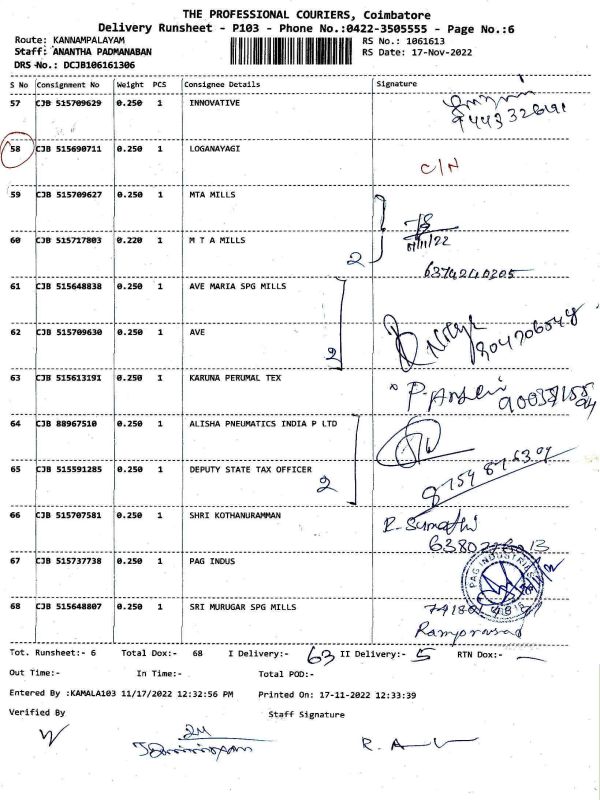 THE PROFESSIONAL COURIERS, Coimbatore
Delivery Runsheet - P103 - Phone No.:0422-3505555 - Page No.:6
Route: KANNAMPALAYAM
RS No.: 1061613
Staff: ANANTHA PADMANABAN
RS Date: 17-Nov-2022
DRS No.: DCJB106161306
S No Consignment No Weight PCS Consignee Details Signature
57 CJB 515709629 0.250 1 INNOVATIVE
58 CJB 515690711 0.250 1 LOGANAYAGI C/N
59 CJB 515709627 0.250 1 MTA MILLS
60 CJB 515717803 0.220 1 M T A MILLS 2
6374240205
61 CJB 515648838 0.250 1 AVE MARIA SPG MILLS
62 CJB 515709630 0.250 1 AVE 2
63 CJB 515613191 0.250 1 KARUNA PERUMAL TEX
64 CJB 88967510 0.250 1 ALISHA PNEUMATICS INDIA P LTD
65 CJB 515591285 0.250 1 DEPUTY STATE TAX OFFICER 2
8754876309
66 CJB 515707581 0.250 1 SHRI KOTHANURAMMAN R. Sumathi
67 CJB 515737738 0.250 1 PAG INDUS PAG INDUSTRIES
68 CJB 515648807 0.250 1 SRI MURUGAR SPG MILLS
Ramprasad
Tot. Runsheet:- 6 Total Dox:- 68 I Delivery:- 63 II Delivery:- 5 RTN Dox:- —
Out Time:- In Time:- Total POD:-
Entered By :KAMALA103 11/17/2022 12:32:56 PM Printed On: 17-11-2022 12:33:39
Verified By Staff Signature